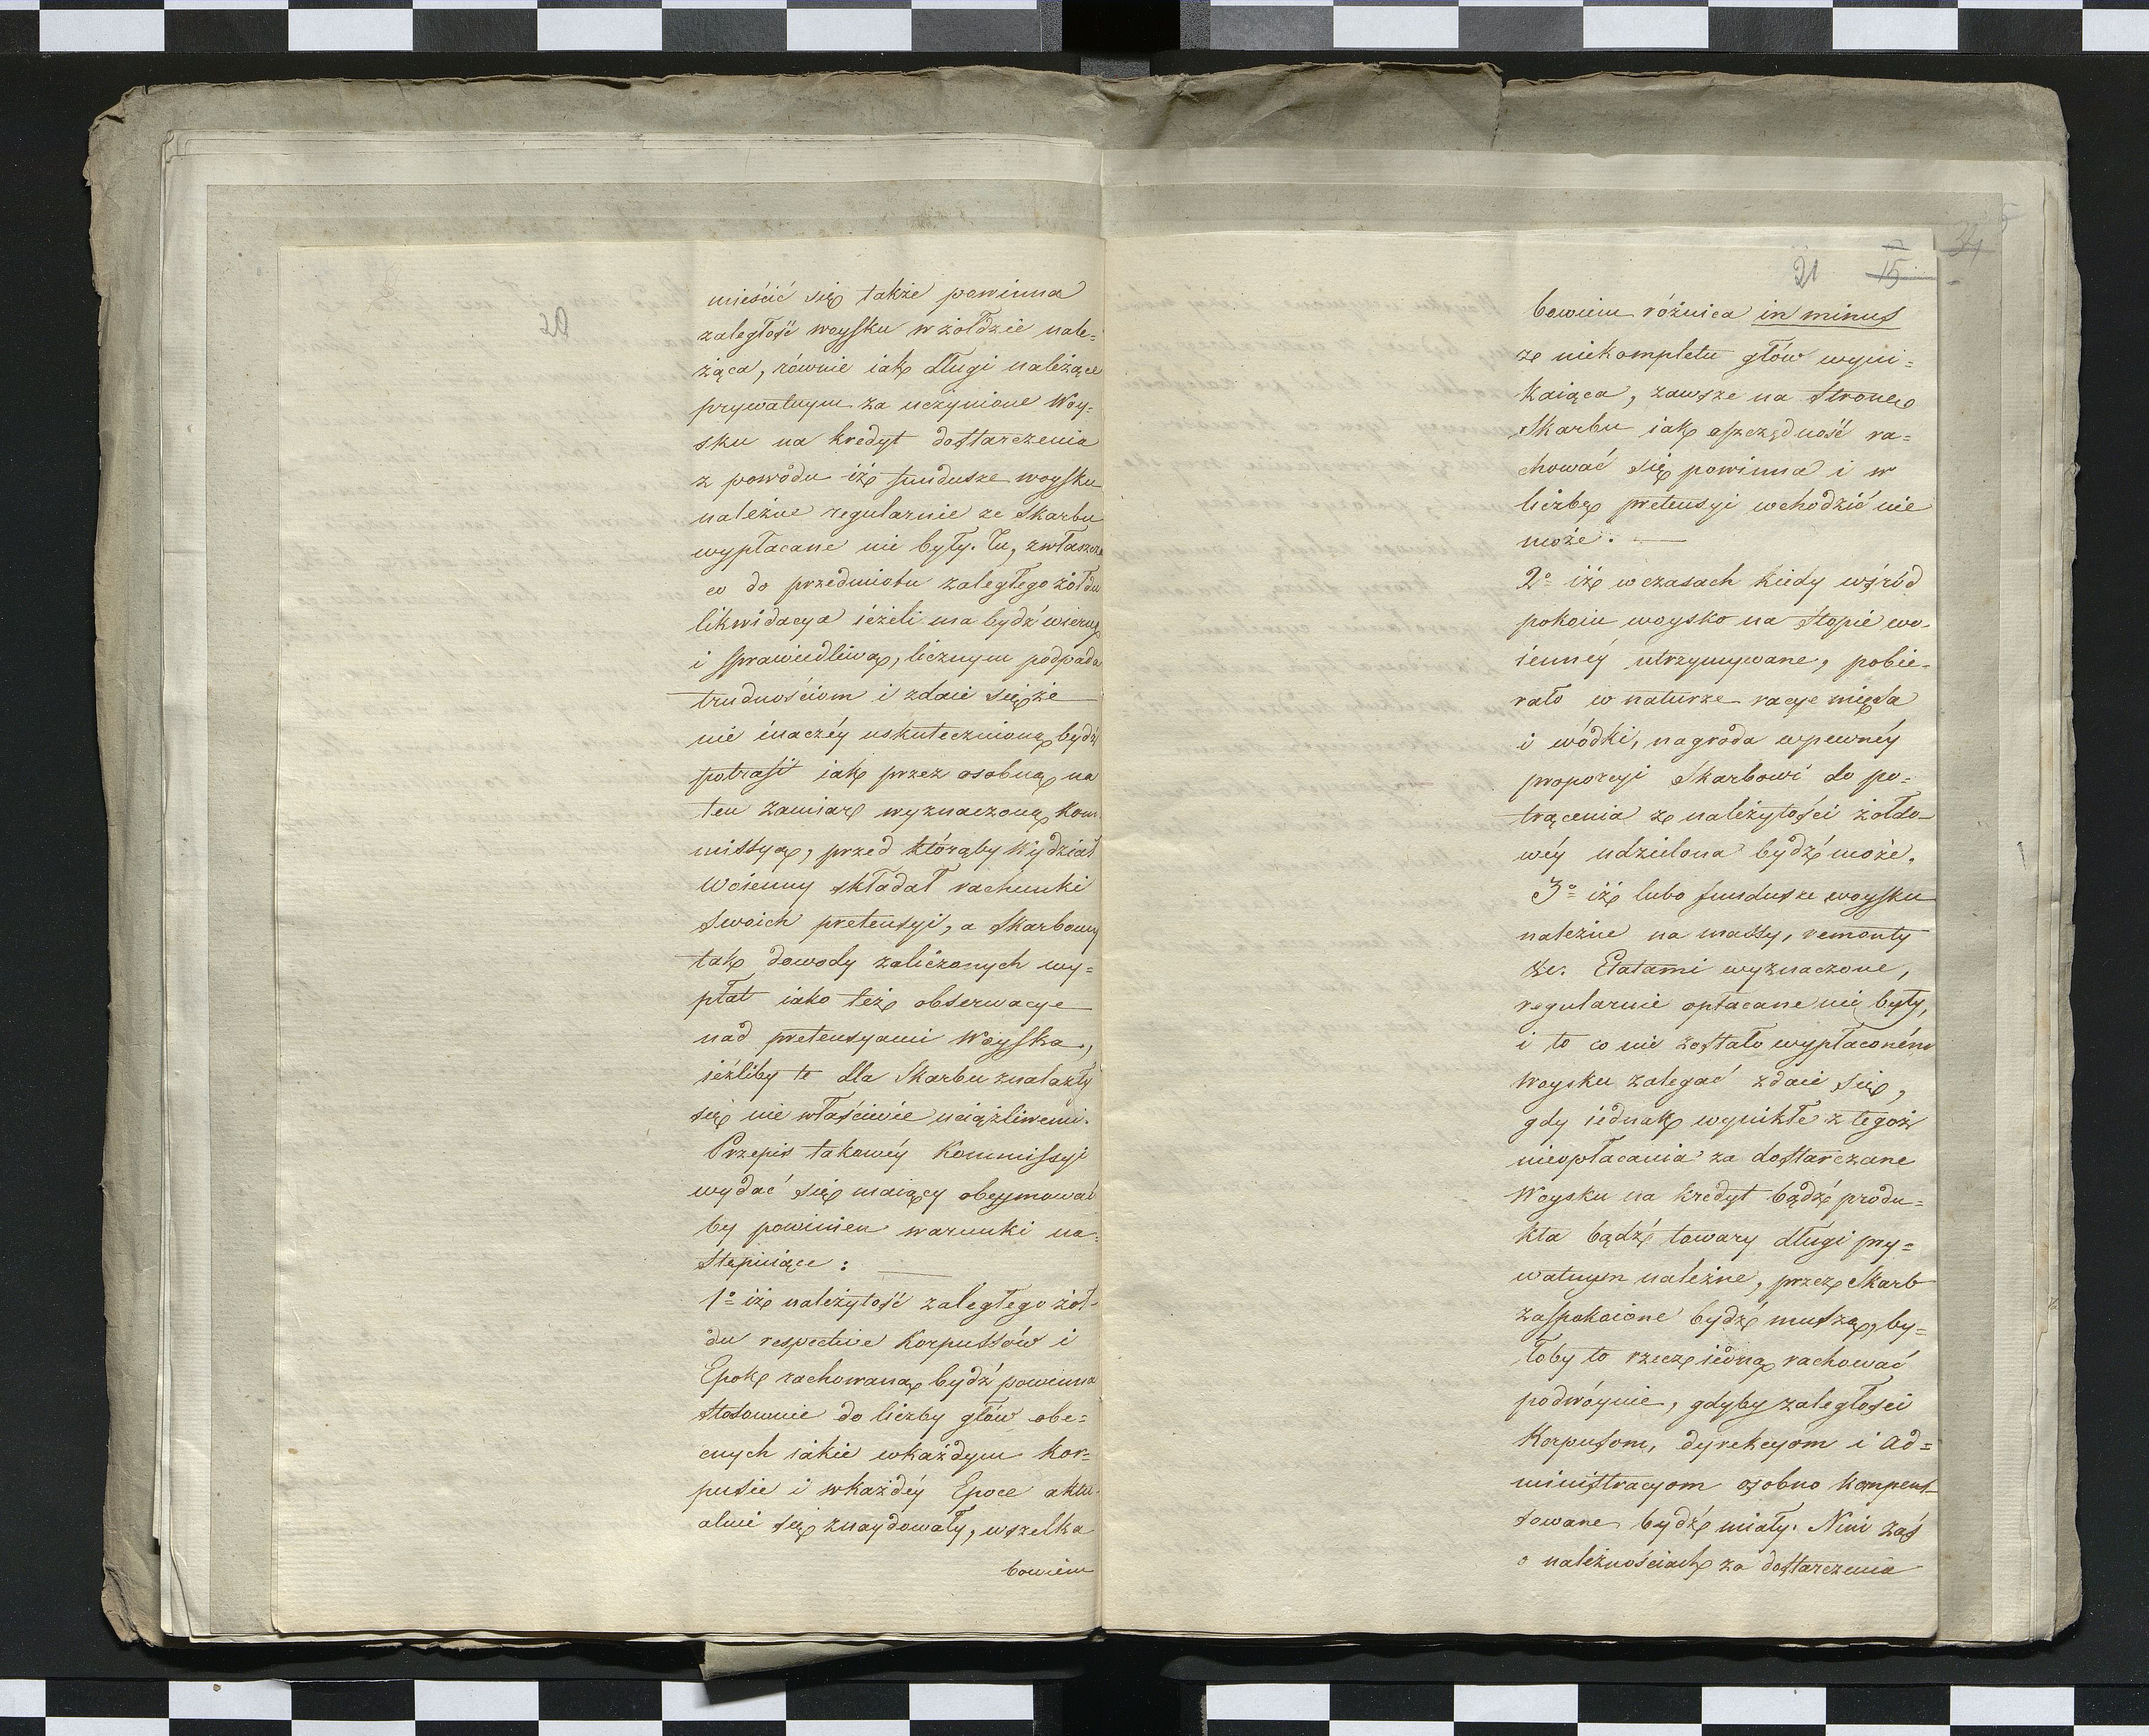 mieścić się także powinna
zaległość woysku w żołdzie nale=
żąca, równie iak długi należące
prywatnym za uczynione Woy=
sku na kredyt dostarczenia
z powodu iż fundusze woysku
należne regularnie ze Skarbu
wypłacane nie były. Tu, zwłaszcza
co do przedmiotu zaległego żołdu
likwidacya ieżeli ma bydź wierną
i sprawiedliwą, licznym podpada
trudnościom i zdaie się że
nie inaczéy uskutecznioną bydź
potrafi iak przez osobną na
ten zamiar wyznaczoną Kom-
missyą, przed którąby Wydział
Woienny składał rachunki
swoich pretensyi, a Skarbowy
tak dowody zaliczonych wy=
płat iako też obserwacye
nad pretensyami Woyska,
ieźliby te dla Skarbu znalazły
się nie właściwie uciążliwemi.
Przepis takowéy Kommissyi
wydać się maiący obeymować
by powinien warunki na=
stępuiące:
1º iż należytość zaległego żoł-
du respective Korpussów i
Epok rachowaną bydź powinna
stosownie do liczby głów obe=
cnych iakie w każdym Kor=
pusie i w każdéy Epoce aktu-
alnie się znaydowały, wszelka
bowiem
21 15
34
bowiem różnica in minus
ze niekompletu głów wyni=
kaiąca, zawsze na Stronę
Skarbu iak oszczędność ra=
chować się powinna i w
liczbę pretensyi wchodzić nie
może.
2º iż w czasach kiedy wśród
pokoiu woysko na stopie wo-
iennéy utrzymywane, pobie-
rało w naturze racye mięsa
i wódki, nagroda w pewnéy
proporcyi Skarbowi do po=
trącenia z należytości żołdo-
wéy udzielona bydź może.
3º iż lubo fundusze woysku
należne na massy, remonty
&c. Etatami wyznaczone,
regularnie opłacane nie były,
i to co nie zostało wypłaconém
Woysku zalegać zdaie się,
gdy iednak wynikłe z tegoż
nieopłacania za dostarczane
Woysku na kredyt bądź produ=
kta bądź towary długi pry=
watnym należne, przez Skarb
zaspokoione bydź muszą, by=
łoby to rzecz iedną rachować
podwóynie, gdyby zaległości
Korpusom, dyrekcyom i ad=
ministracyom osobno kompens-
sowane bydź miały. Nim zaś
o należnościach za dostarczenia